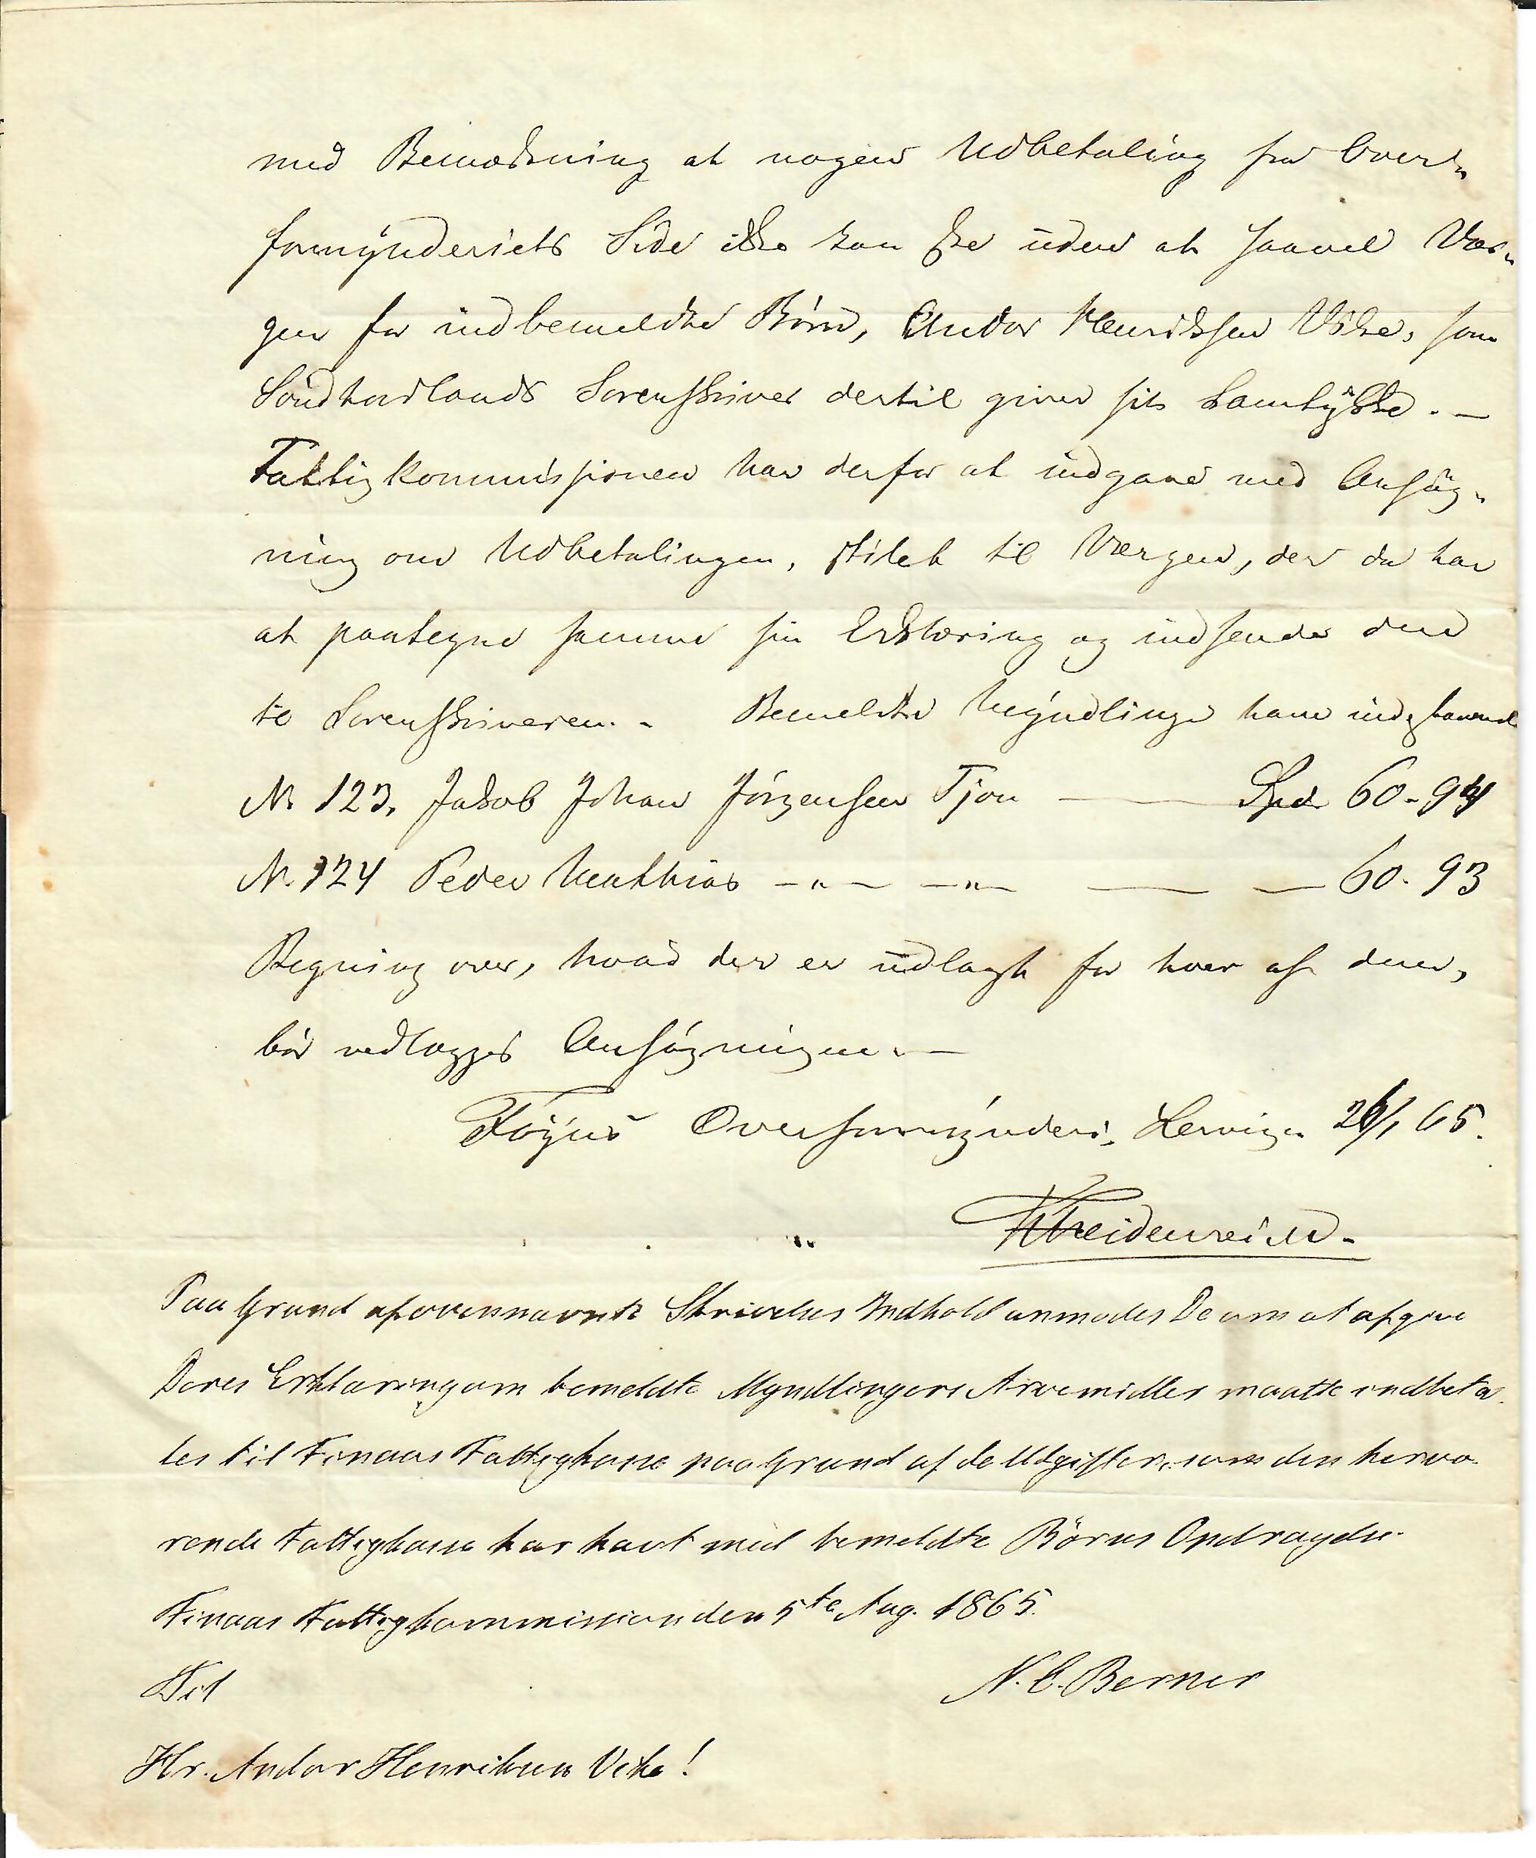 med Bemærkning at nogen Udbetaling fra Over-
formynderiets Side ikke kan ske uden at saavel Vær-
gen for indbemeldte Børn, Andor Henriksen Vike, som
Söndhordlands Sorenskriver dertil giver sit Samtykke. —
Fattigkommissionen har derfor at indgaae med Ansøg-
ning om Udbetalingen, stilet til Værgen, der da har
at paategne samme sin Erklæring og indsende den
til Sorenskriveren. - Bemeldte Myndlinge have indestaaende
N. 123. Jakob Johan Jörgensen Tjon — Spd. 60-94
N. 124 Peder Mathias —"— —"— — — 60-93
Regning over, hvad der er udlagt for hver af dem,
bör vedlægges Ansögningen. —
Föyens Overformynderi, Lervigen 26/1 65.
Heidenreich.
Paa Grund af ovennævnte Skrivelses Indhold anmodes De om at afgive
Deres Erklæring om bemeldte Myndlingers Arvemidler maatte indbeta-
les til Finaas Fattigkasse paa Grund af de Udgifter, som den herva-
rende Fattigkasse har havt med bemeldte Börns Opdragelse.
Finaas Fattigkommission den 5te Aug. 1865.
N. C. Berner
Til
Hr. Andor Henriksen Vike!